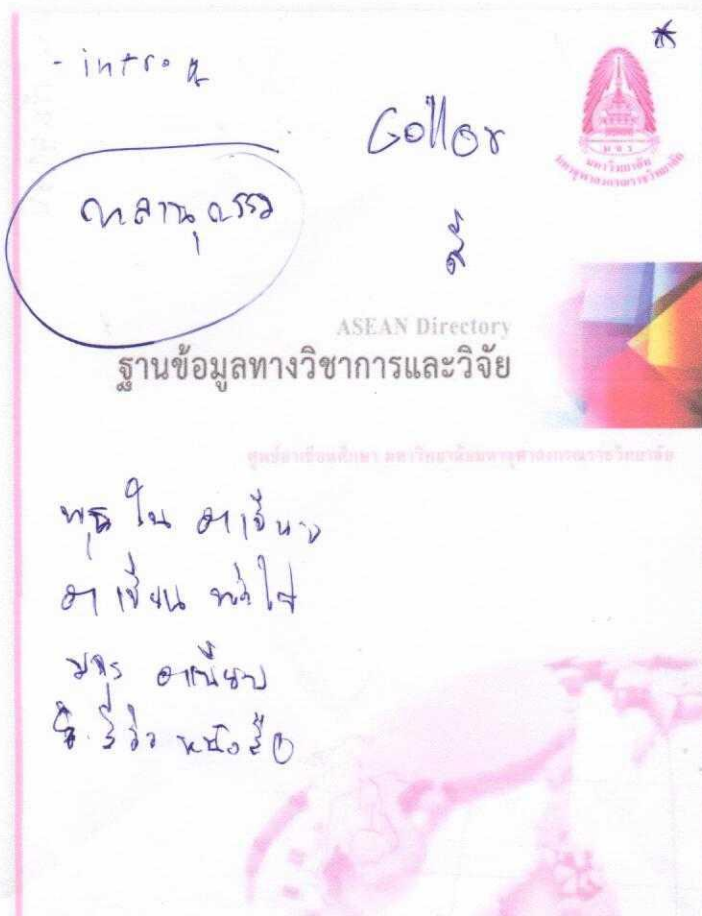 - intro
Collor
สี
มจร
มหาวิทยาลัย
มหาจุฬาลงกรณราชวิทยาลัย
ASEAN Directory
ฐานข้อมูลทางวิชาการและวิจัย
ศูนย์อาเซียนศึกษา มหาวิทยาลัยมหาจุฬาลงกรณราชวิทยาลัย
พุทธ ใน อาเซียน
อาเซียน
มจร อาเซียน
รีวิว หนังสือ